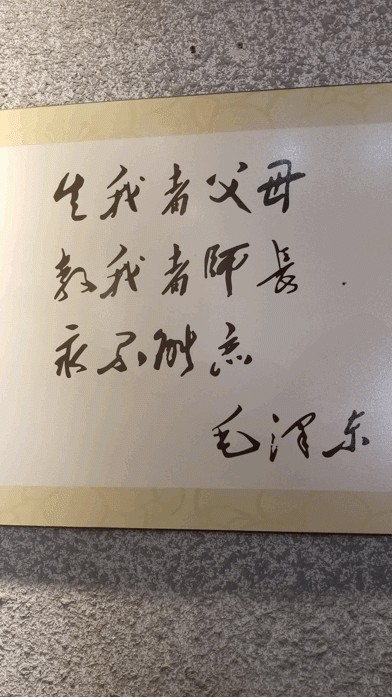 生我者父母
教我者師長
永不能忘
毛泽东